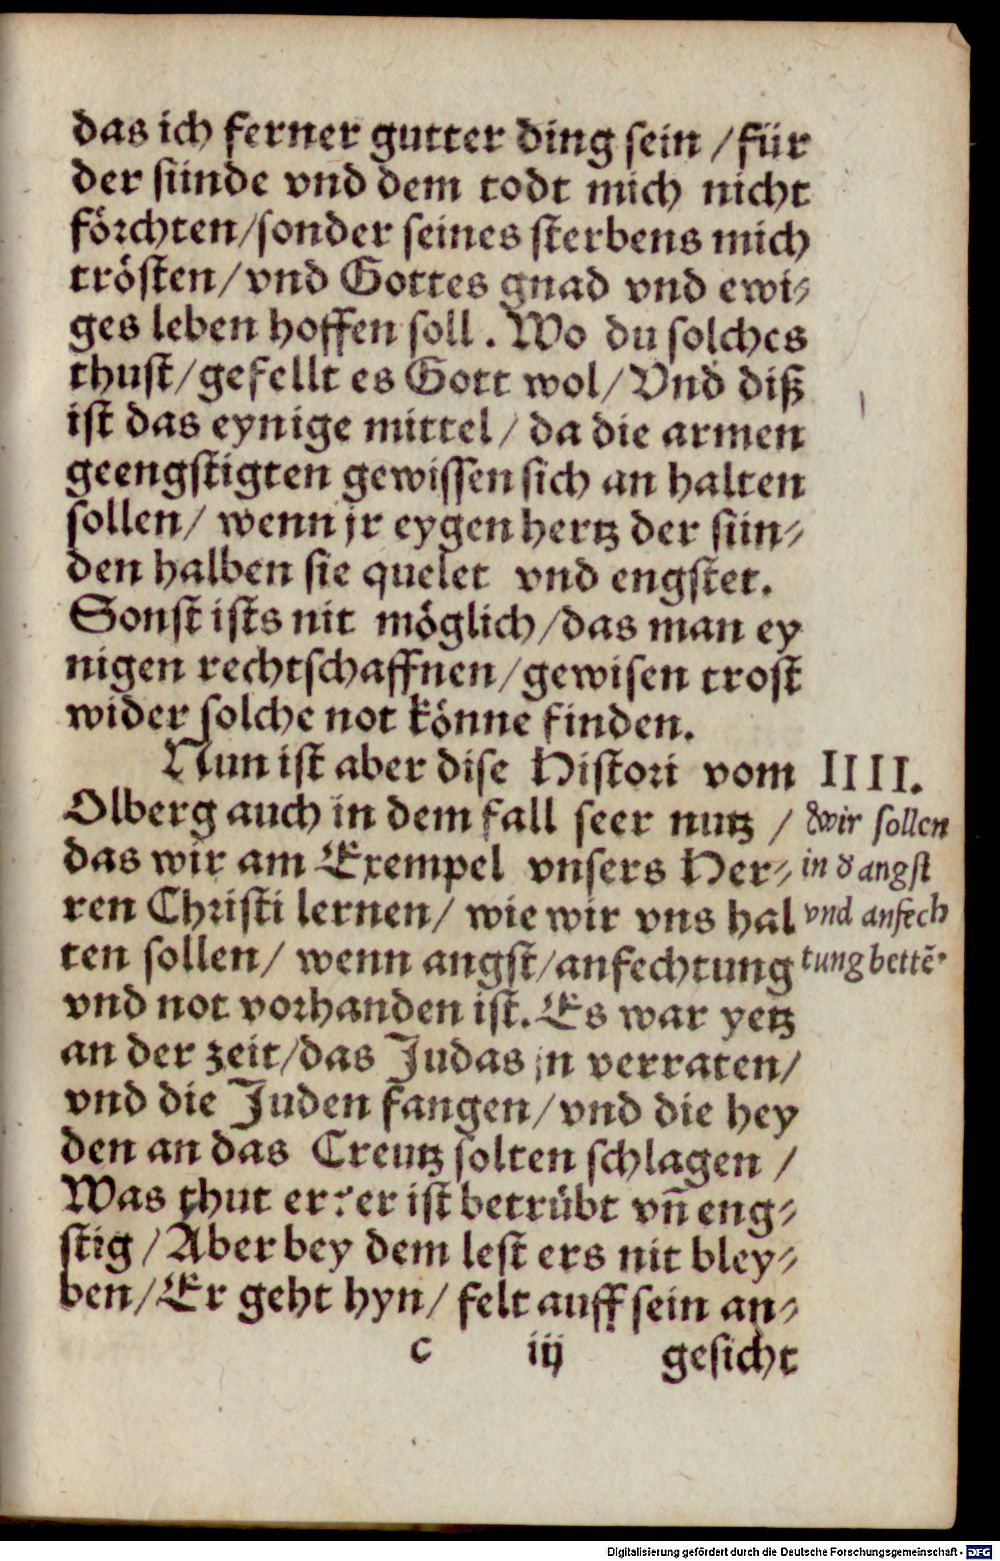 das ich ferner gutter ding sein / für
der sünde vnd dem todt mich nicht
förchten/sonder seines sterbens mich
trösten/ vnd Gottes gnad vnd ewi⸗
ges leben hoffen soll. Wo du solches
thust/gefellt es Gott wol/ Vnd diß
ist das eynige mittel/ da die armen
geengstigten gewissen sich an halten
sollen/ wenn jr eygen hertz der sün⸗
den halben sie quelet vnd engstet.
Sonst ists nit möglich/das man ey
nigen rechtschaffnen/gewisen trost
wider solche not könne finden.
Nun ist aber dise Histori vom
Olberg auch in dem fall seer nutz /
das wir am Exempel vnsers Her⸗
ren Christi lernen/ wie wir vns hal
ten sollen/ wenn angst/anfechtung
vnd not vorhanden ist. Es war yetz
an der zeit/das Judas jn verraten/
vnd die Juden fangen/vnd die hey
den an das Creutz solten schlagen /
Was thut er? er ist betrübt vñ eng⸗
stig / Aber bey dem lest ers nit bley⸗
ben/ Er geht hyn/ felt auff sein an⸗
c iij gesicht
IIII.
Wir sollen
in d angst
vnd anfech
tung bettē.
Digitalisierung gefördert durch die Deutsche Forschungsgemeinschaft - DFG